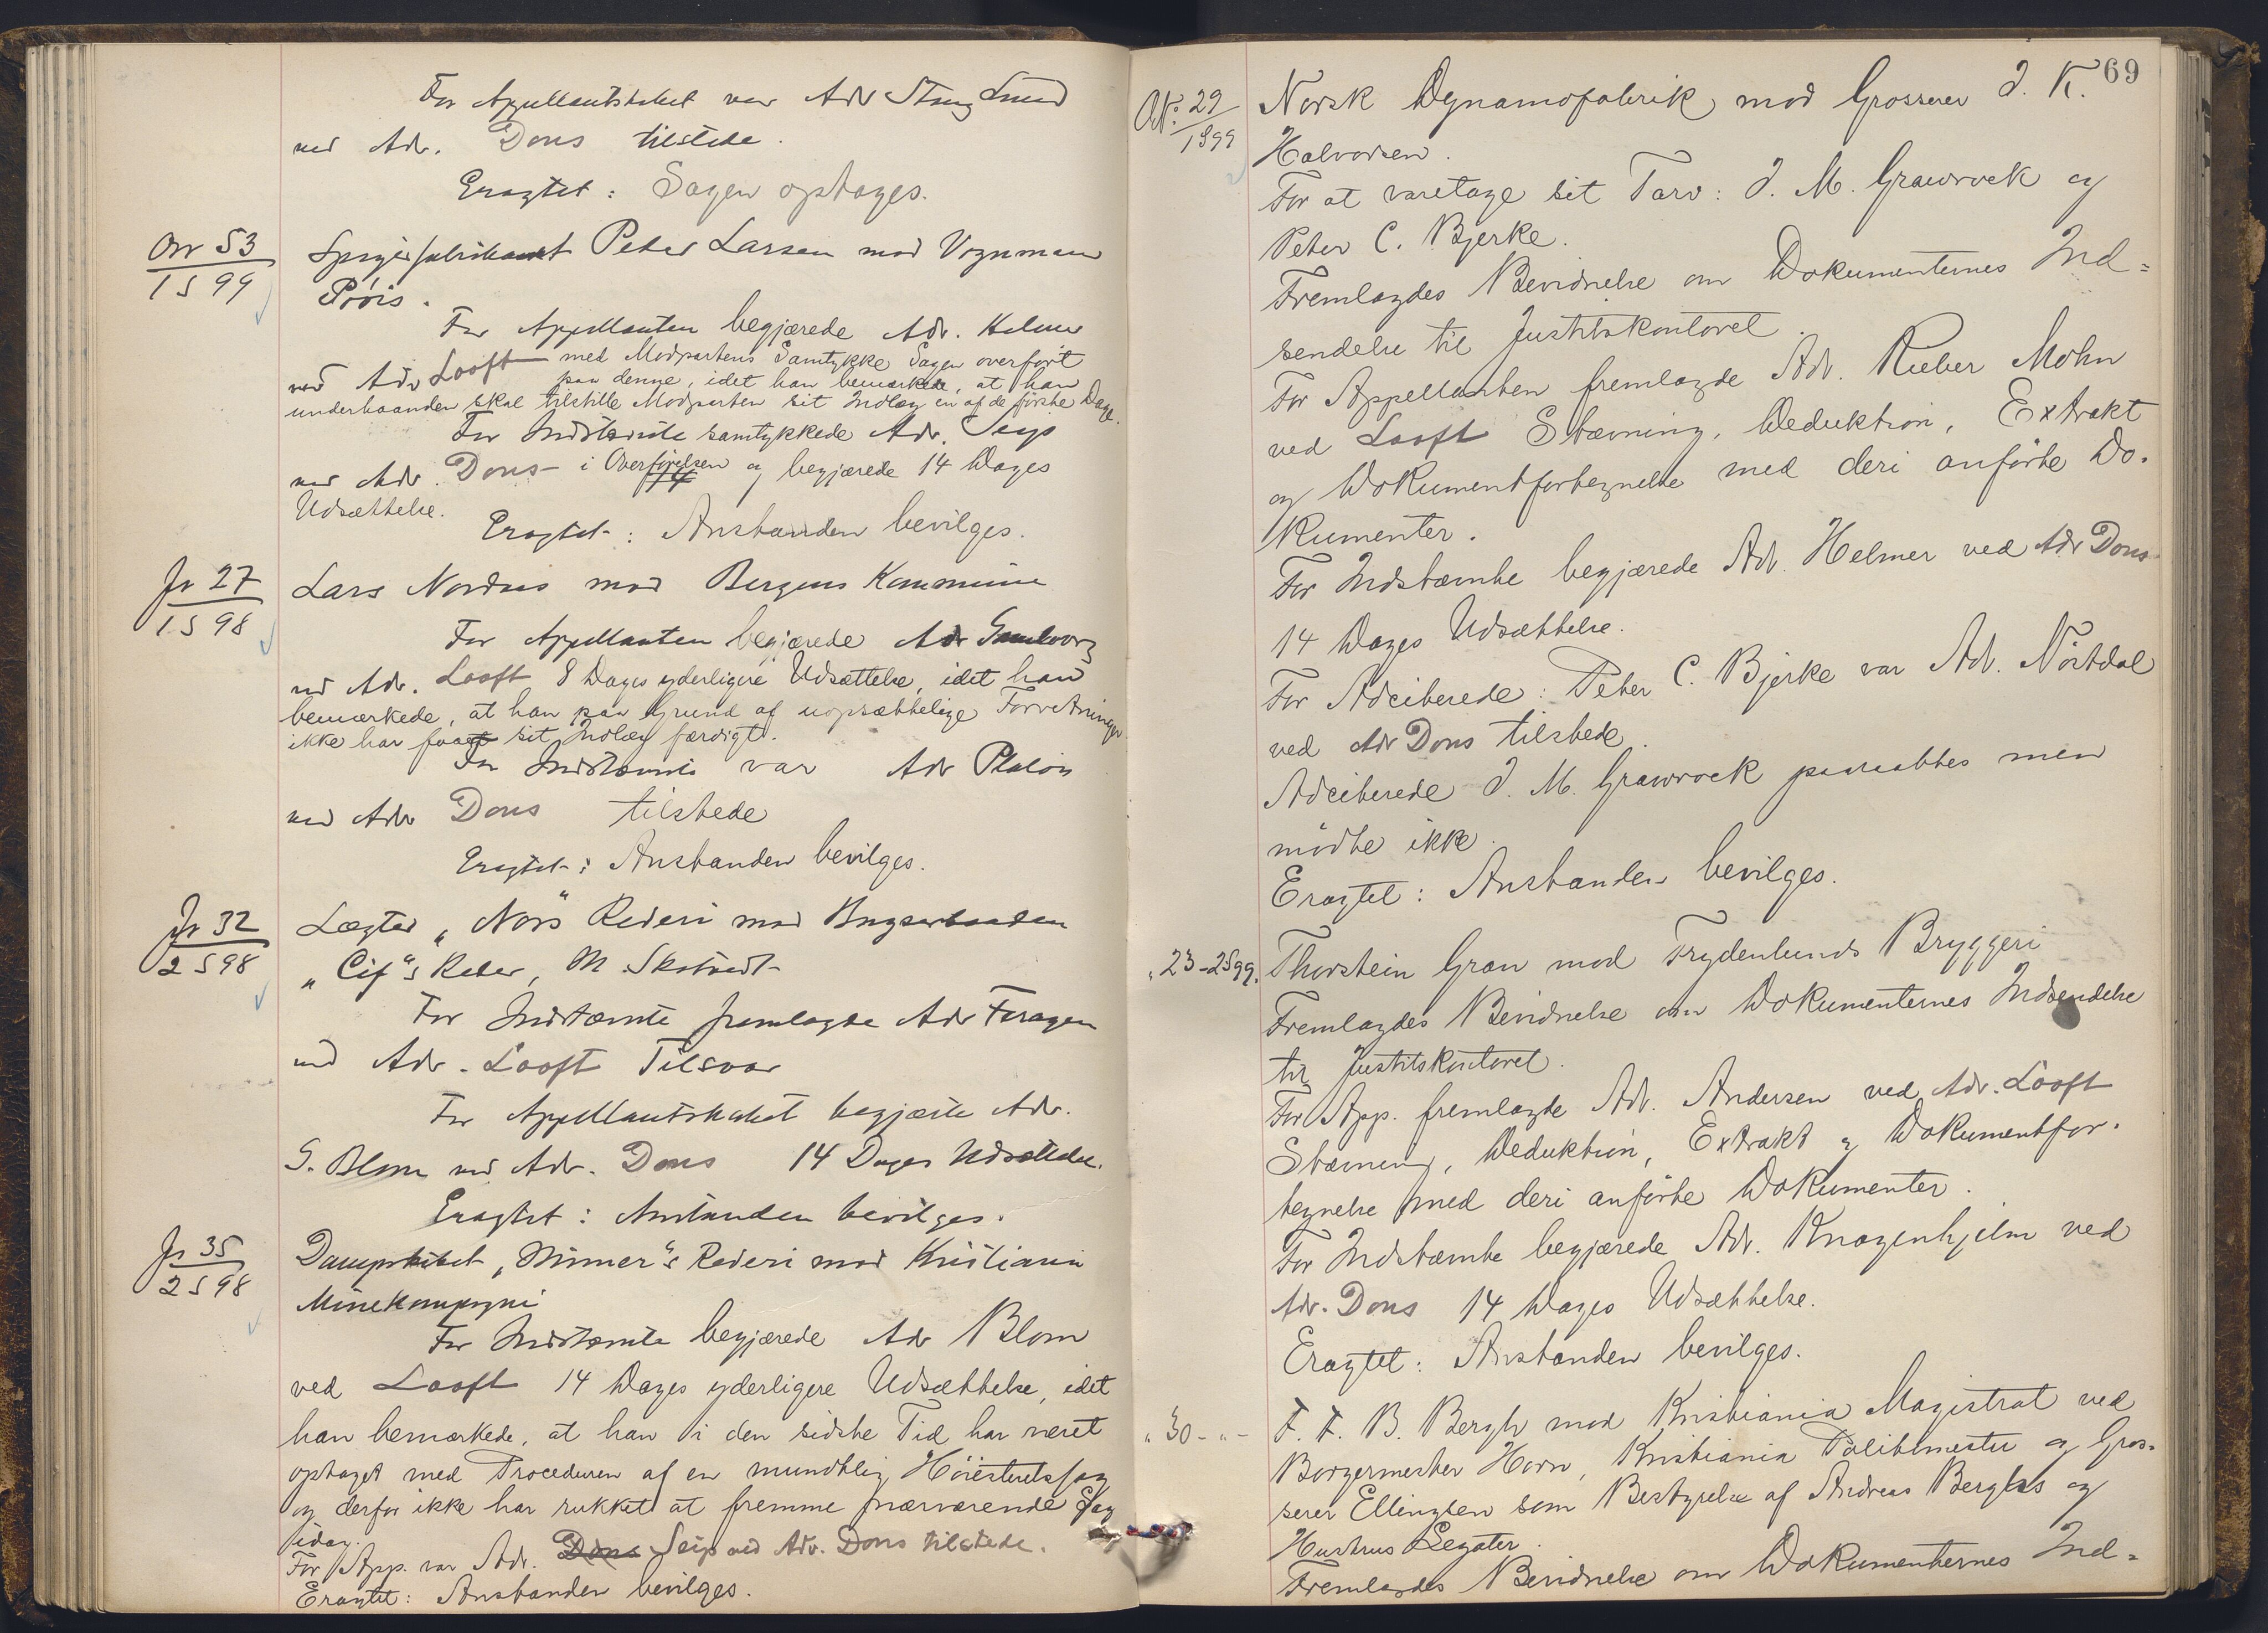 For Appellantskabet var Adv Stang Lund
ved Adv. Dons tilstede.
Eragtet: Sagen optages.
Or 53
1 S 99
Spigerfabrikant Peter Larsen mod Vognmand
Pröis.
For Appellanten begjærede Adv. Helmer
ved Adv Looft med Modpartens Samtykke Sagen overfört
paa denne, idet han bemærkede, at han
underhaanden skal tilstille Modparten sit Indlæg en af de förste Dage.
For Indstævnte samtykkede Adv. Seip
ved Adv. Dons i Overförelsen og begjærede 14 Dages
Udsættelse.
Eragtet: Anstanden bevilges.
Jr 27
1 S 98
Lars Nordnes mod Bergens Kommune
For Appellanten begjærede Adv
ved Adv. Looft 8 Dages yderligere Udsættelse, idet han
bemærkede, at han paa Grund af uopsættelige Forretninger
ikke har faaet sit Indlæg færdigt.
For Indstævnte var Adv Platou
ved Adv Dons tilstede
Eragtet: Anstanden bevilges.
Jr 32
2 S 98
Lægter „Nor"s Rederi mod Bugserbaaden
„Cif"s Reder, M. Skotvedt
For Indstævnte fremlagde Adv
ved Adv. Looft Tilsvar
For Appellantskabet begjærte Adv.
G. Blom ved Adv. Dons 14 Dages Udsættelse.
Eragtet: Anstanden bevilges.
Jr 35
2 S 98
Dampskibet „Mimer"s Rederi mod Kristiania
Minekompagni
For Indstævnte begjærede Adv Blom
ved Looft 14 Dages yderligere Udsættelse, idet
han bemærkede, at han i den sidste Tid har været
optaget med Proceduren af en mundtlig Höiesteretssag
og derfor ikke har rukket at fremme nærværende Sag
idag.
For App. var Adv. Dons Seip ved Adv. Dons tilstede.
Eragtet: Anstanden bevilges.
69
Or. 29
1 S 99
Norsk Dynamofabrik mod Grosserer J. K.
Halvorsen.
For at varetage sit Tarv: J. M. Grawrock og
Peter C. Bjerke.
Fremlagdes Bevidnelse om Dokumenternes Ind=
sendelse til Justitskontoret.
For Appellanten fremlagde Adv. Rieber Mohn
ved Looft Stævning, Deduktion, Extrakt
og Dokumentfortegnelse med deri anförte Do-
kumenter.
For Indstævnte begjærede Adv. Helmer ved Adv Dons
14 Dages Udsættelse.
For Adciterede: Peter C. Bjerke var Adv. Nörtdal
ved Adv Dons tilstede.
Adciterede J. M. Grawrock paaraabtes men
mödte ikke.
Eragtet: Anstanden bevilges.
„ 23 - 2S 99.
Thorstein Gran mod Frydenlunds Bryggeri
Fremlagdes Bevidnelse om Dokumenternes Indsendelse
til Justitskontoret.
For App. fremlagde Adv. Andersen ved Adv. Looft
Stævning, Deduktion, Extrakt og Dokumentfor-
tegnelse med deri anförte Dokumenter.
For Indstævnte begjærede Adv. Knagenhjelm ved
Adv. Dons 14 Dages Udsættelse.
Eragtet: Anstanden bevilges.
„ 30 - „ -
F. F. B. Bergh mod Kristiania Magistrat ved
Borgermester Horn, Kristiania Politimester og Gros-
serer Ellingsen som Bestyrelse af Andreas Berghs og
Hustrus Legater.
Fremlagdes Bevidnelse om Dokumenternes Ind=